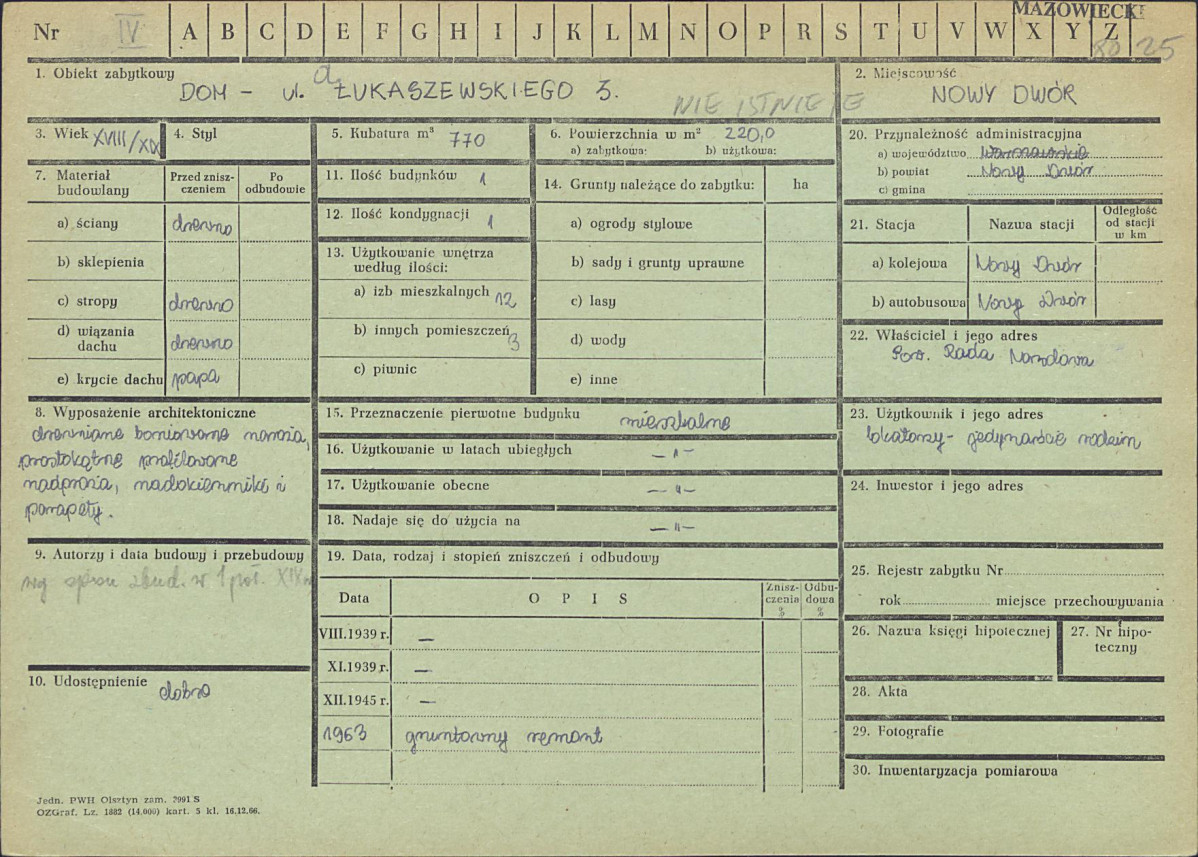 MAZOWIECKIE
Nr IV A B C D E F G H I J K L M N O P R S T U V W X Y Z 25
1. Obiekt zabytkowy
DOM - ul. ŁUKASZEWSKIEGO 3. a
NIE ISTNIEJE
2. Miejscowość
NOWY DWÓR
3. Wiek XVIII/XIX
4. Styl
5. Kubatura m³ 770
6. Powierzchnia w m² 220,0
a) zabytkowa: b) użytkowa:
20. Przynależność administracyjna
a) województwo Warszawskie
b) powiat Nowy Dwór
c) gmina
7. Materiał budowlany
Przed zniszczeniem
Po odbudowie
a) ściany drewno
b) sklepienia
c) stropy drewno
d) wiązania dachu drewno
e) krycie dachu papa
11. Ilość budynków 1
12. Ilość kondygnacji 1
13. Użytkowanie wnętrza
według ilości:
a) izb mieszkalnych 12
b) innych pomieszczeń 3
c) piwnic
14. Grunty należące do zabytku: ha
a) ogrody stylowe
b) sady i grunty uprawne
c) lasy
d) wody
e) inne
21. Stacja
Nazwa stacji
Odległość
od stacji
w km
a) kolejowa Nowy Dwór
b) autobusowa Nowy Dwór
22. Właściciel i jego adres
Rada Narodowa
8. Wyposażenie architektoniczne
drewniane boniowane naroża,
prostokątne profilowane
nadproża, nadokienniki i
parapety.
15. Przeznaczenie pierwotne budynku mieszkalne
16. Użytkowanie w latach ubiegłych - " -
17. Użytkowanie obecne - " -
18. Nadaje się do użycia na - " -
23. Użytkownik i jego adres
lokatorzy - jedynaście rodzin
24. Inwestor i jego adres
9. Autorzy i data budowy i przebudowy
wg zbud. w 1 poł. XIX w
19. Data, rodzaj i stopień zniszczeń i odbudowy
Data
O P I S
Zniszczenia %
Odbudowa %
VIII.1939 r. -
XI.1939 r. -
XII.1945 r. -
1963 gruntowny remont
25. Rejestr zabytku Nr
rok miejsce przechowywania
26. Nazwa księgi hipotecznej
27. Nr hipoteczny
10. Udostępnienie dobre
28. Akta
29. Fotografie
30. Inwentaryzacja pomiarowa
Jedn. PWH Olsztyn zam. 7991 S
OZGraf. Lz. 1882 (14.000) kart. 5 kl. 16.12.66.